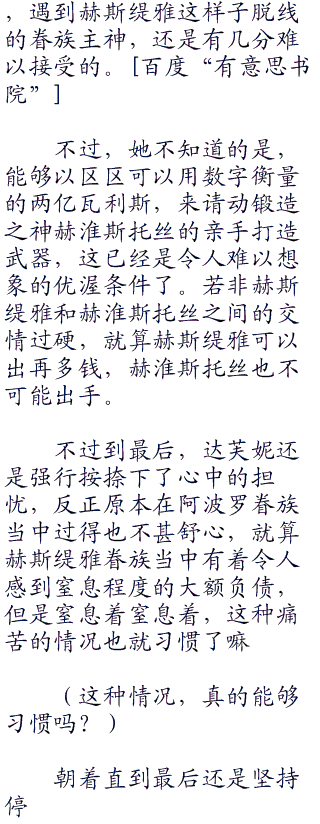 ，遇到赫斯缇雅这样子脱线
的眷族主神，还是有几分难
以接受的。[百度“有意思书
院”]
不过，她不知道的是，
能够以区区可以用数字衡量
的两亿瓦利斯，来请动锻造
之神赫淮斯托丝的亲手打造
武器，这已经是令人难以想
象的优渥条件了。若非赫斯
缇雅和赫淮斯托丝之间的交
情过硬，就算赫斯缇雅可以
出再多钱，赫淮斯托丝也不
可能出手。
不过到最后，达芙妮还
是强行按捺下了心中的担
忧，反正原本在阿波罗眷族
当中过得也不甚舒心，就算
赫斯缇雅眷族当中有着令人
感到窒息程度的大额负债，
但是窒息着窒息着，这种痛
苦的情况也就习惯了嘛
（这种情况，真的能够
习惯吗？）
朝着直到最后还是坚持
停